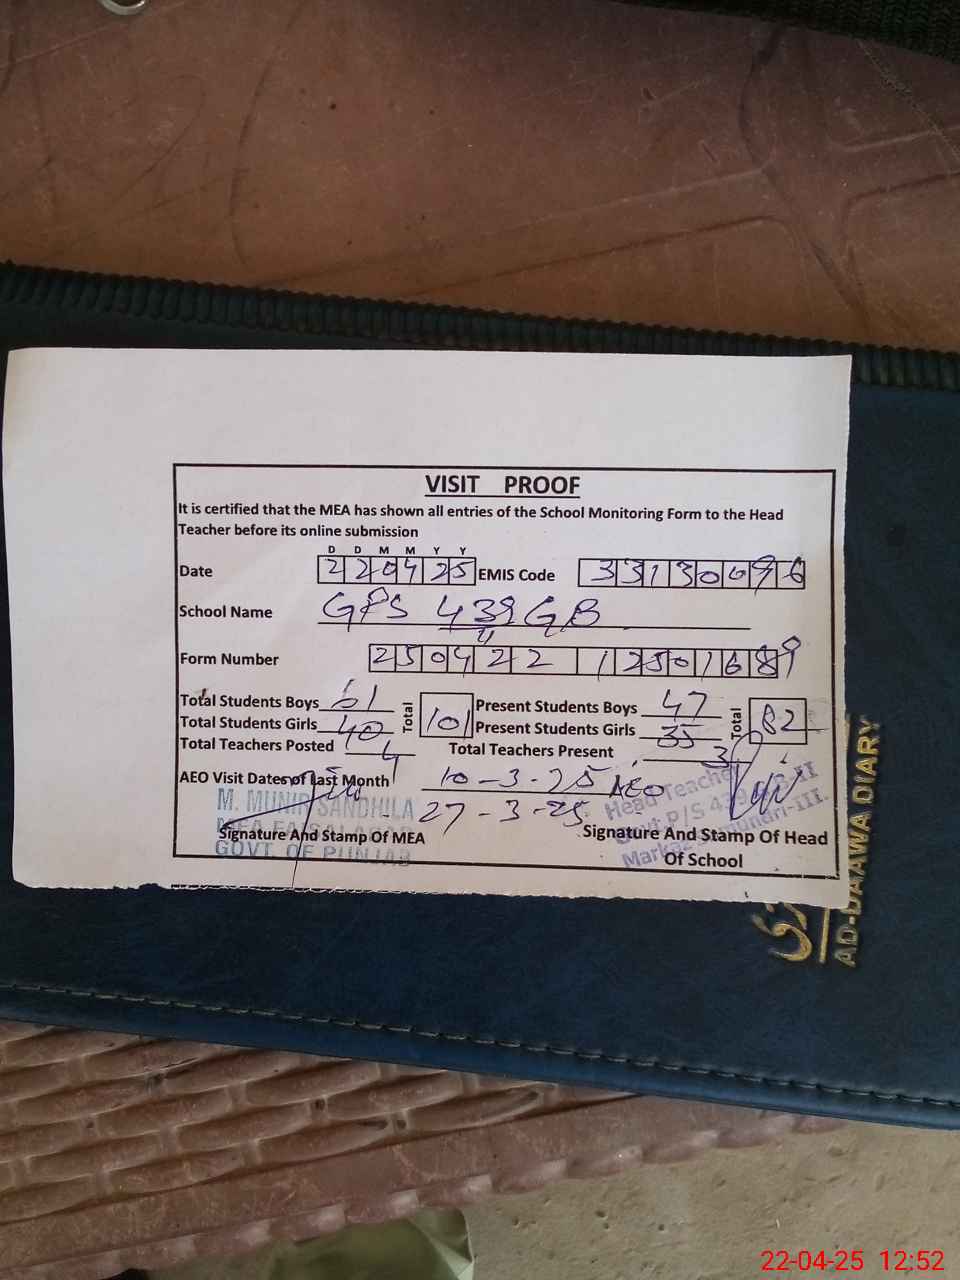 VISIT PROOF
It is certified that the MEA has shown all entries of the School Monitoring Form to the Head
Teacher before its online submission
D D M M Y Y
Date 220425 EMIS Code 33130096
School Name GPS 439 GB
Form Number 25042212501689
Total Students Boys 61 Total 101 Present Students Boys 47 Total 82
Total Students Girls 40 Present Students Girls 35
Total Teachers Posted 4 Total Teachers Present 3
AEO Visit Dates of Last Month 10-3-25 AEO
27-3-25
M. MUNIR SANDHILA
MEA FAISALABAD
GOVT. OF PUNJAB
Signature And Stamp Of MEA
Head Teacher
Govt P/S 439 -II
Markaz Samundri-III.
Signature And Stamp Of Head
Of School
AD-DAAWA DIARY
22-04-25 12:52